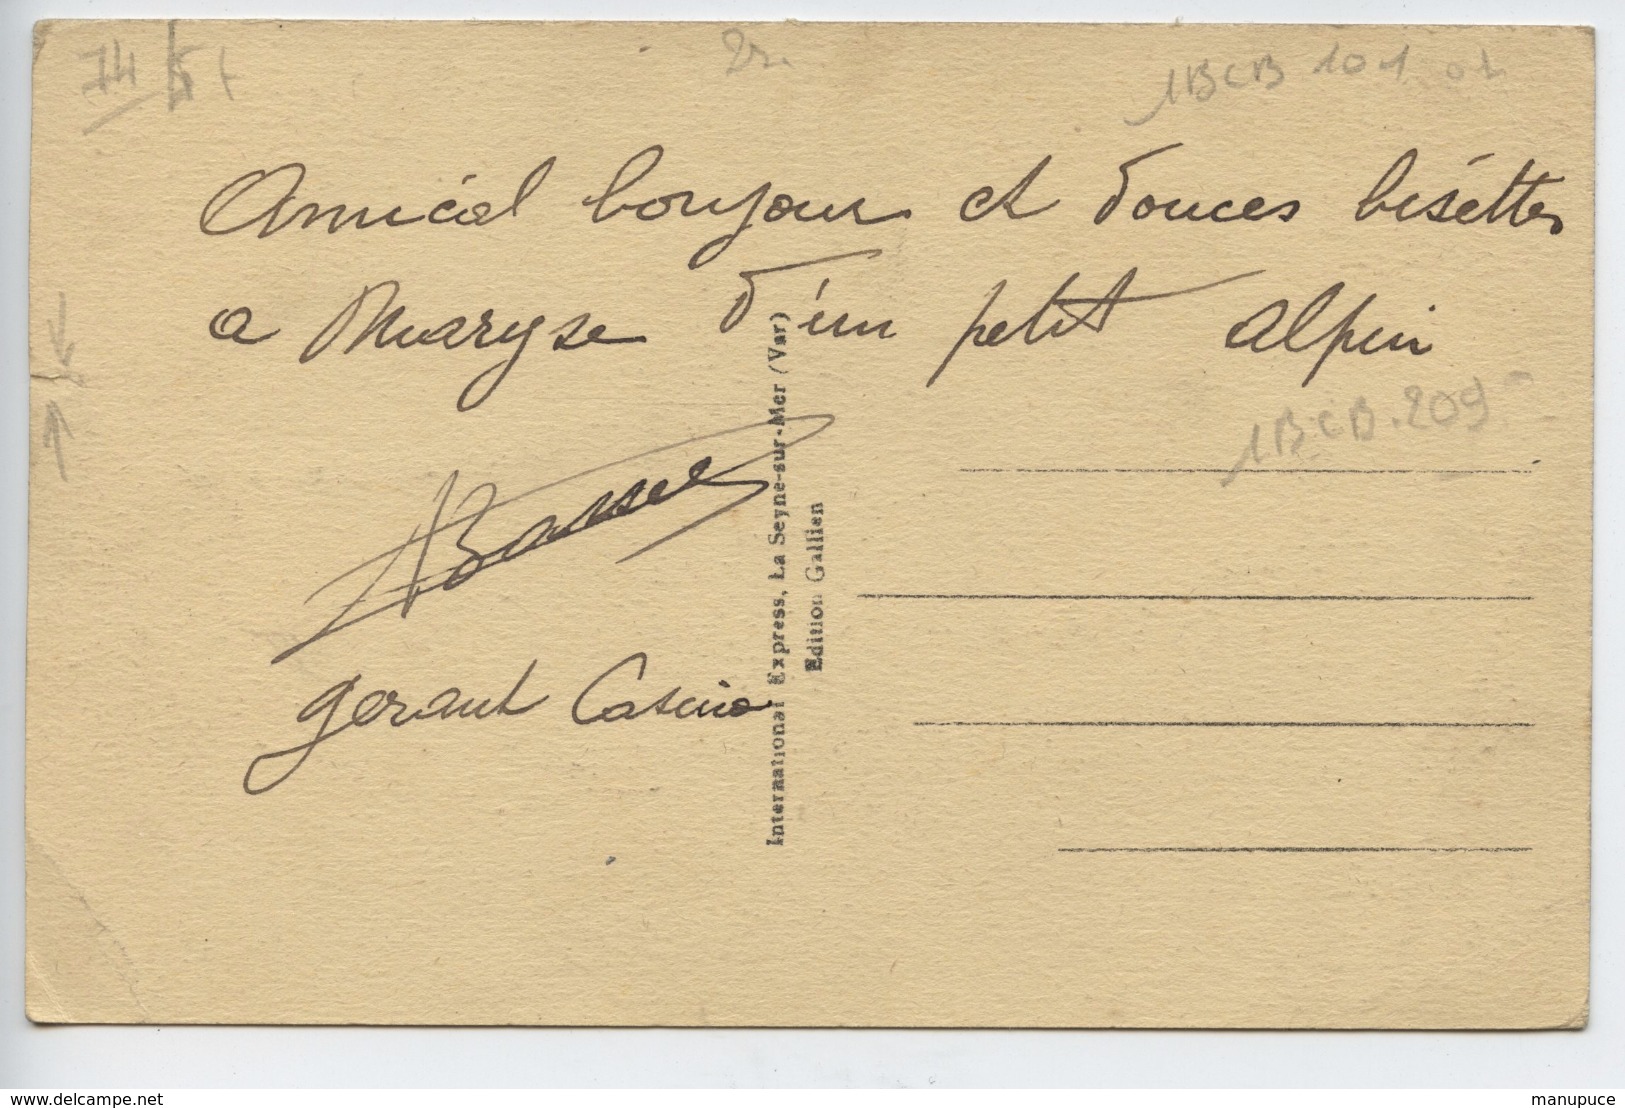 74
2r.
1BCB 101 01
Amical bonjour et douces biséttes
a Maryse d'un petit alpin
1BCB.209
gerant Casino
International Express, La Seyne-sur-Mer (Var)
Edition Gallien
www.delcampe.net
manupuce